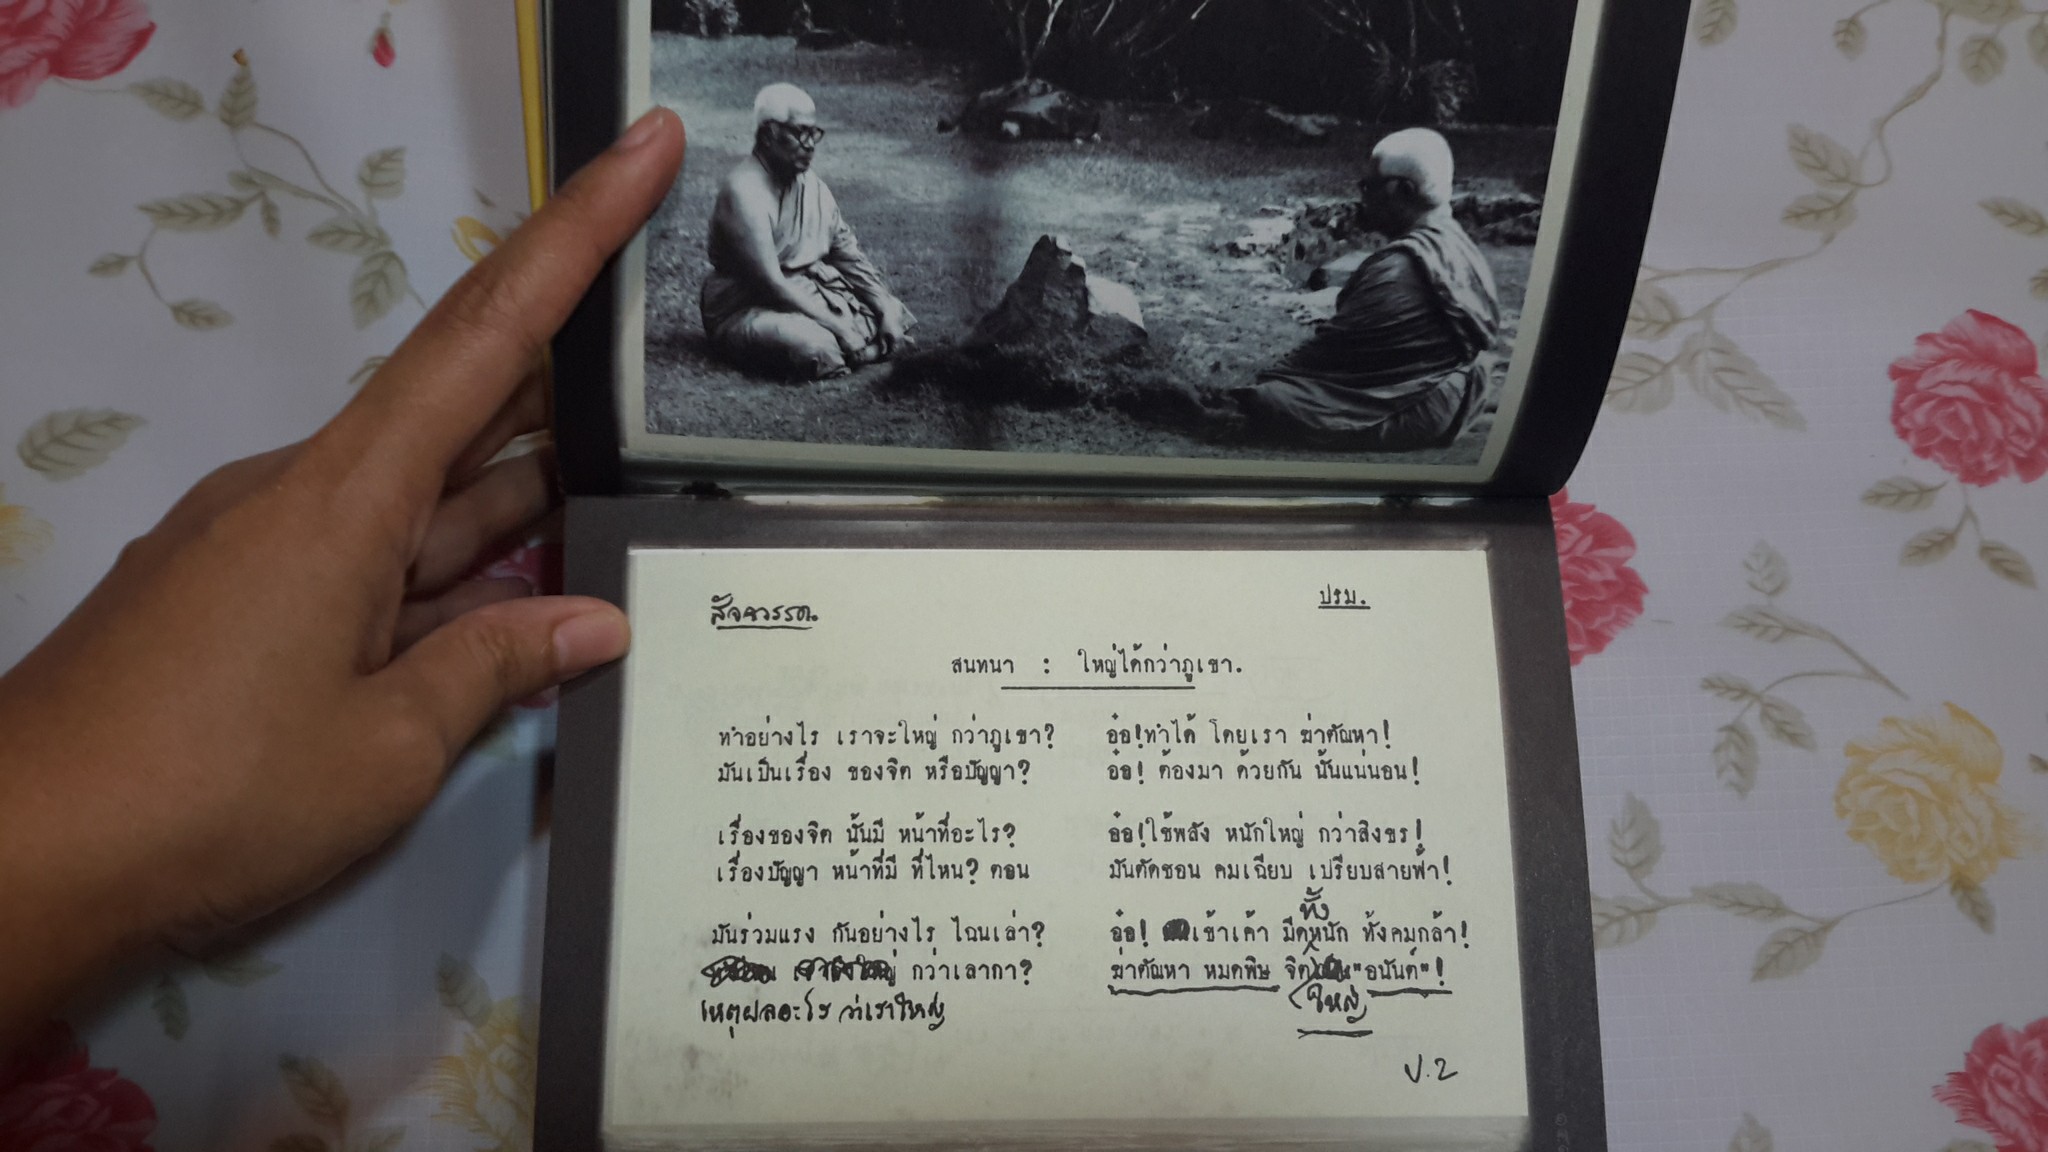 สัจจวรรณ
ปรม.
สนทนา : ใหญ่ได้กว่าภูเขา.
ทำอย่างไร เราจะใหญ่ กว่าภูเขา? อ๋อ!ทำได้ โดยเรา ฆ่าตัณหา!
มันเป็นเรื่อง ของจิต หรือปัญญา? อ๋อ! ต้องมา ด้วยกัน นั้นแน่นอน!
เรื่องของจิต นั้นมี หน้าที่อะไร? อ๋อ!ใช้พลัง หนักใหญ่ กว่าสิงขร!
เรื่องปัญญา หน้าที่มี ที่ไหน? ตอน มันตัดชอน คมเฉียบ เปรียบสายฟ้า!
มันร่วมแรง กันอย่างไร ไฉนเล่า? อ๋อ! เข้าเค้า มีดทั้งหนัก ทั้งคมกล้า!
กว่าเลากา? ฆ่าตัณหา หมดพิษ จิตใหญ่ "อนันต์"!
เหตุผลอะไร ว่าเราใหญ่
ป.2